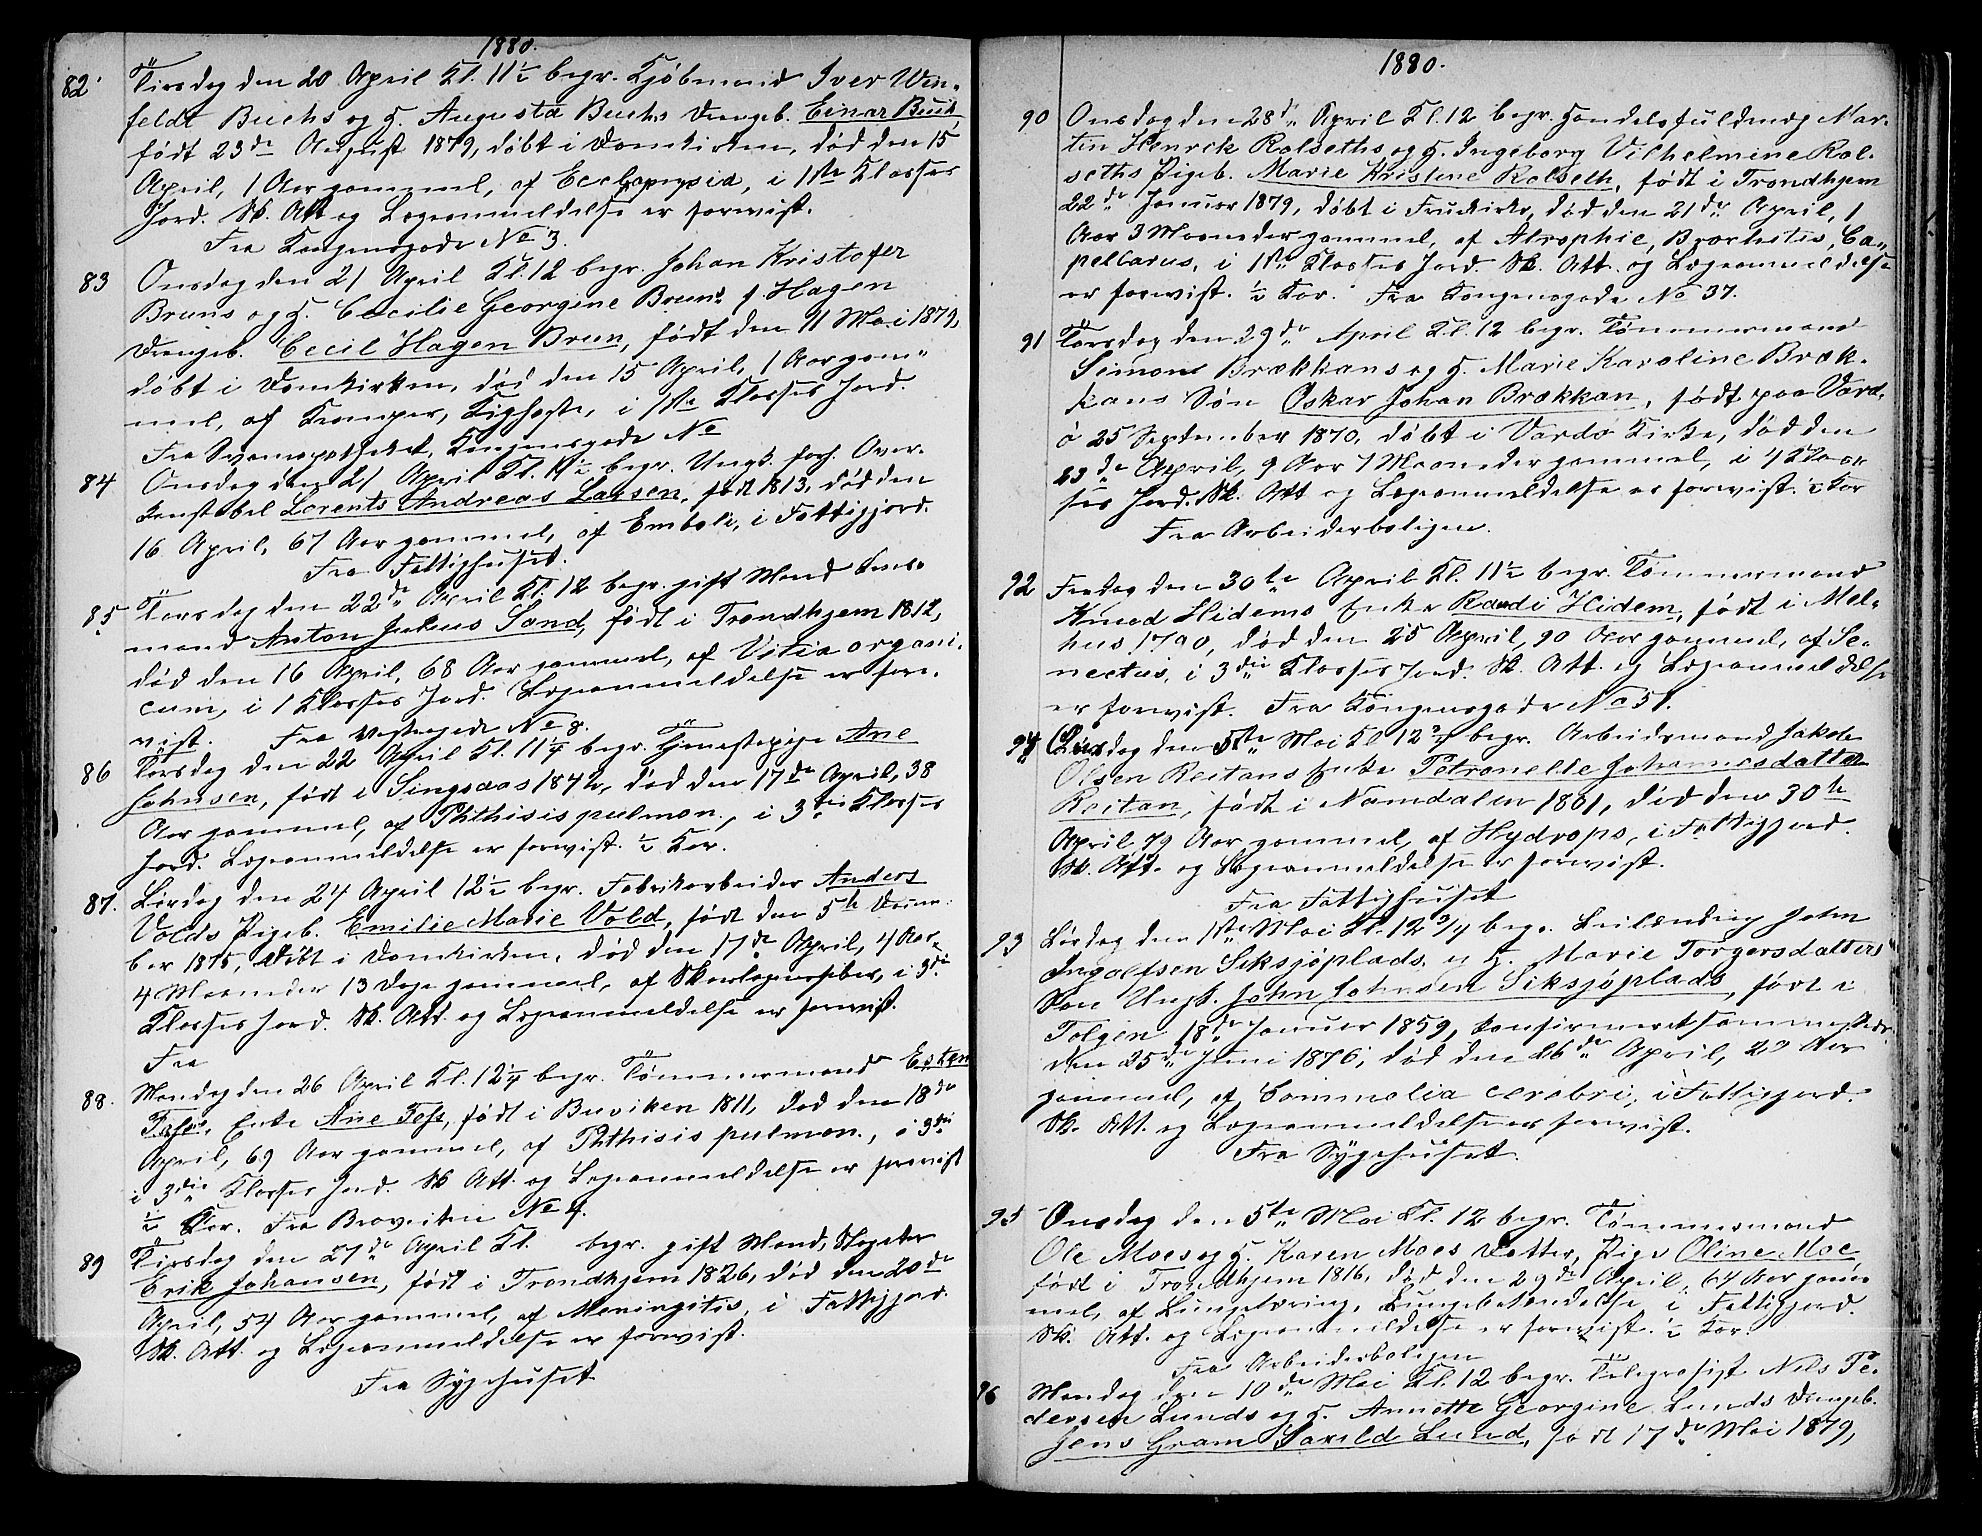 1880.
82. Tirsdag den 20 April Kl. 11½ begr. Kjøbmand Iver Win-
feldt Buchs og H. Augusta Buchs Drengeb. Einar Buch
født 23de August 1879, døbt i Domkirken, død den 15
April, 1 Aar gammel, af Ecclampsia, i 1ste Klasses
Jord. Sk. Att og Lægeanmeldelse er forevist.
Fra Kongensgade No 3.
83 Onsdag den 21 April Kl. 12 begr. Johan Kristofer
Bruns og H. Cecilie Georgine Bruns f. Hagen
Drengeb. Cecil Hagen Brun, født den 11 Mai 1879,
døbt i Domkirken, død den 15 April, 1 Aar gam-
mel, af Kramper, Kighoste, i 1ste Klasses Jord.
Fra Svaneapotheket, Kongensgade No
84 Onsdag den 21 April Kl. 11½ begr. Ungk. forh. Over-
konstabel Lorents Andreas Larsen, født 1813, død den
16 April, 67 Aar gammel, af Emboli, i Fattigjord.
Fra Fattighuset.
85 Torsdag den 22de April Kl. 12 begr. gift Mand
mand Anton Julius Sand, født i Trondhjem 1812,
død den 16 April, 68 Aar gammel, af Vitia organi-
cum, i 1 Klasses Jord. Lægeanmeldelse er fore-
vist. Fra Vestregade No 8.
86 Torsdag den 22 April Kl. 11¼ begr. Tjenestepige Ane
Johnsen, født i Singsaas 1842, død den 17de April, 38
Aar gammel, af Phthisis pulmon., i 3die Klasses
Jord. Lægeanmeldelse er forevist. ½ Kor.
87. Lørdag den 24 April 12½ begr. Fabrikarbeider Anders
Volds Pigeb. Emilie Marie Vold, født den 5te Decem-
ber 1875, døbt i Domkirken, død den 17de April, 4 Aar
4 Maaneder 13 Dage gammel, af Skarlagensfeber, i 3die
Klasses Jord. Sk. Att. og Lægeanmeldelse er forevist.
Fra
88. Mandag den 26 April Kl. 12¼ begr. Tømmermand Esten
Enke Ane, født i Buviken 1811, død den 18de
April, 69 Aar gammel, af Phthisis pulmon., i 3die
i 3die Klasses Jord. Sk Att. og Lægeanmeldelse er forevist
½ Kor. Fra Braveiten No 4.
89 Tirsdag den 27de April Kl. begr. gift Mand,
Erik Johansen, født i Trondhjem 1826, død den 20de
April, 54 Aar gammel, af Meningitis, i Fattigjord.
Sk. Att. og Lægeanmeldelse er forevist.
Fra Sygehuset
1880.
90 Onsdag den 28de April Kl. 12 begr. Handelsfuldmæg Mar-
tin Henrik Rolseths og H. Ingeborg Vilhelmine Rol-
seths Pigeb. Marie Kristine Rolseth, født i Trondhjem
22de Januar 1879, døbt i Fruekirke, død den 21de April, 1
Aar 3 Maaneder gammel, af Atrophie, Bronkitis, Ca-
pellarus, i 1ste Klasses Jord. Sk. Att. og Lægeanmeldelse
er forevist. ½ Kor. Fra Kongensgade No 37.
91 Torsdag den 29de April Kl. 12 begr. Tømmermand
Simons Brækkans og H. Marie Karoline Bræk-
kans Søn Oskar Johan Brækkan, født paa Vard-
ø 25 September 1870, døbt i Vardø Kirke, død den
23de April, 9 Aar 7 Maaneder gammel, i 4 Klas-
ses Jord. Sk. Att og Lægeanmeldelse er forevist. ½ Kor
Fra Arbeiderboligen.
92 Fredag den 30te April Kl. 11½ begr. Tømmermand
Knud Hidems Enke Randi Hidem, født i Mel-
hus 1790, død den 25 April, 90 Aar gammel, af Se-
nectus, i 3die Klasses Jord. Sk. Att. og Lægeanmeldelse
er forevist. Fra Kongensgade No 51.
94 Onsdag den 5te Mai Kl 12¾ begr. Arbeidsmand Jakob
Olsen Reitans Enke Petronelle Johannesdatter
Reitan, født i Namdalen 1801, død den 30te
April 79 Aar gammel, af Hydrops, i Fattigjord.
Sk. Att. og Lægeanmeldelse er forevist.
Fra Fattighuset
93 Lørdag den 1ste Mai Kl. 12 3/4 begr. Leilænding John
Ingolfsen Siksjøplads og H. Marie Torgersdatters
Søn Ungk. John Johnsen Siksjøplads, født i
Tolgen 18de Januar 1859, konfirmeret sammesteds
den 25de Juni 1876, død den 26de April, 20 Aar
gammel, af Commelia cerebri, i Fattigjord.
Sk. Att. og Lægeanmeldelse er forevist.
Fra Sygehuset.
95 Onsdag den 5te Mai Kl. 12 begr. Tømmermand
Ole Moes og H. Karen Moes Datter, Pige Oline Moe
født i Trondhjem 1816, død den 29de April, 64 Aar gam-
mel, af Lungetæring, Lungebetændelse, i Fattigjord.
Sk. Att. og Lægeanmeldelse er forevist. ½ Kor.
Fra Arbeiderboligen
96 Mandag den 10de Mai Kl. 12 begr. Telegrafist Nels Pe-
dersen Lunds og H. Annette Georgine Lunds Drengeb.
Jens Gram Saxild Lund, født 17de Mai 1879,